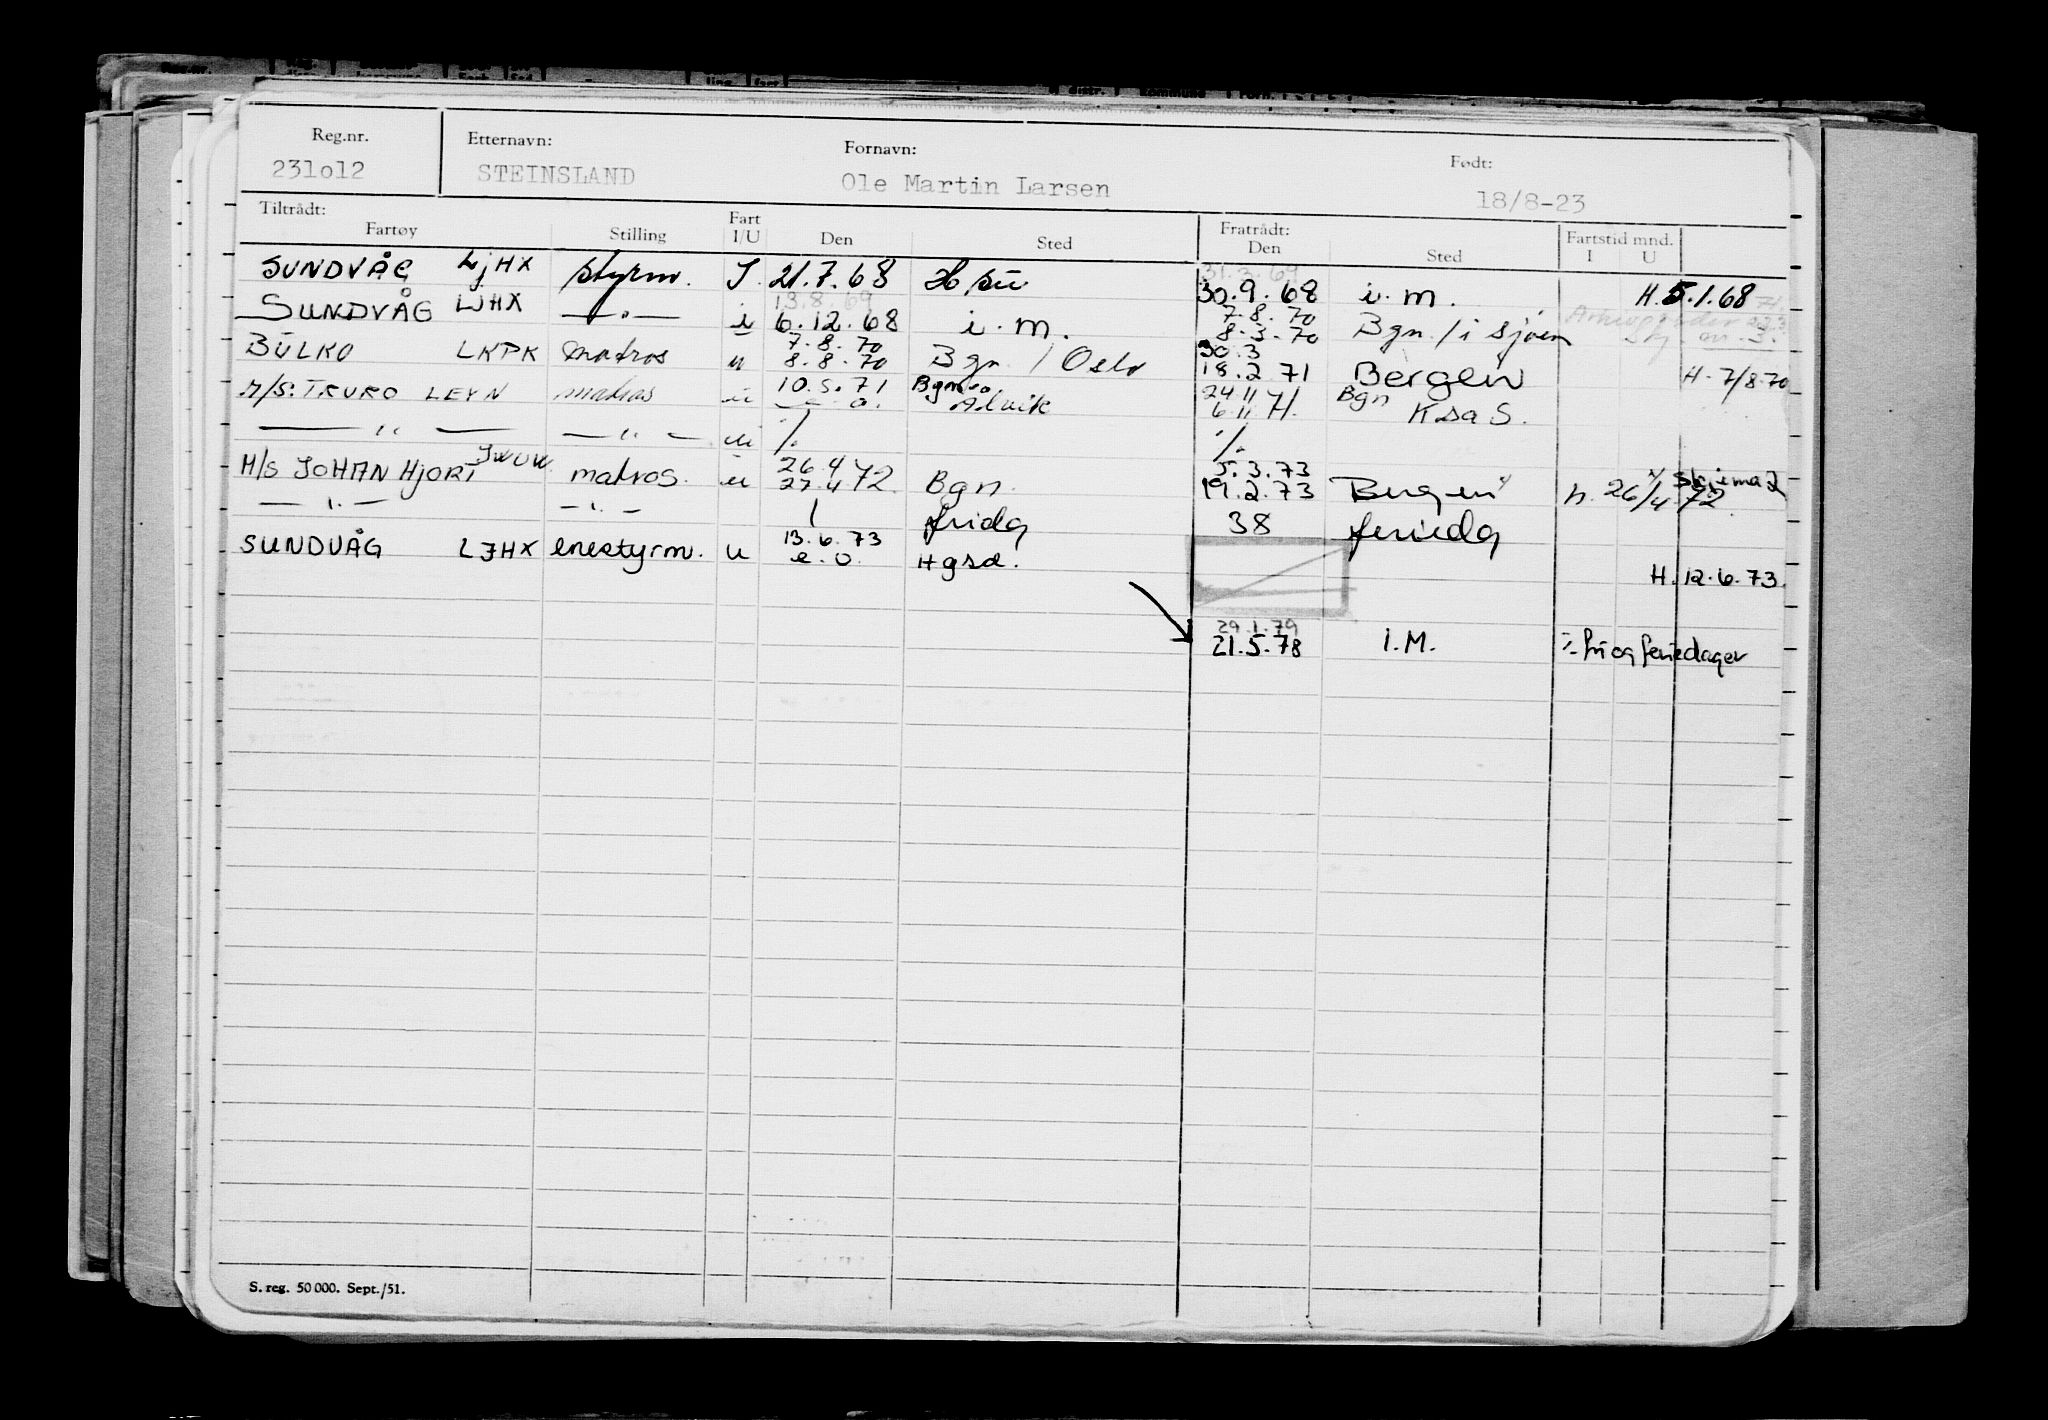 Reg.nr. Etternavn: Fornavn: Født:
231o12 STEINSLAND Ole Martin Larsen 18/8-23
Tiltrådt: Fratrådt: Fartstid mnd.
Fartøy Stilling Fart I/U Den Sted Den Sted I U
31.3.69
SUNDVÅG LJHX styrm. I 21.7.68 30.9.68 i.m. H.5.1.68
13.8.69 7.8.70
SUNDVÅG LJHX —"— i 6.12.68 i.m. 8.3.70 Bgn./i sjøen
7.8.70 30.3
BULKO LKPK matros u 8.8.70 Bgn / Oslo 18.2.71 Bergen H. 7/8.70
10.5.71 Bgn 24.11 Bgn
M/S. TRURO LEYN matros u Ålvik 6.11.71. K sa S.
—"— —"— u ·/. ·/.
JWUW 26.4 5.3.73 skjema 2
M/S JOHAN HJORT matros. u 27.4 72. Bgn. 19.2.73 Bergen h. 26/4.72.
—"— —"— / fridg 38 feriedg
13.6.73
SUNDVÅG LJHX enestyrm. u e.o. Hgsd.
H. 12.6.73.
29.1.79
21.5.78 i.M. ·/. fri og feriedager
S. reg. 50 000. Sept./51.